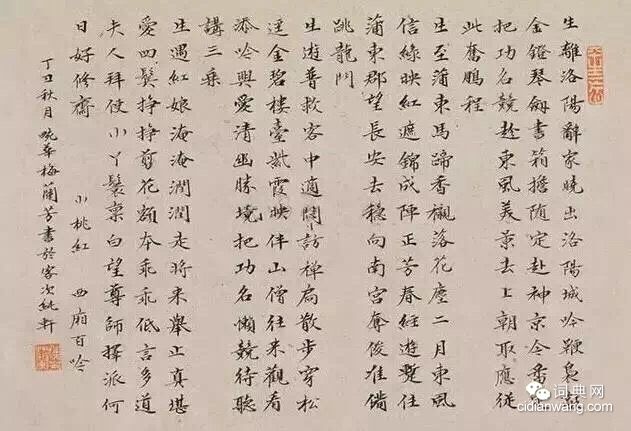 生離洛陽辭家曉出洛陽城吟鞭裊
金鐙琴劍書箱擔随定赴神京今番
把功名競趁東風美景去上朝取應從
此奮鵬程
生至蒲東馬蹄香襯落花塵二月東風
信綠映紅遮錦成陣正芳春經遊蹔住
蒲東郡望長安去穩向南宮奪俊准備
跳龍門
生遊普救客中適悶訪禅扃散步穿松
逕金碧樓臺紫霞映伴山僧往来觀看
添吟興愛清幽勝境把功名懶競待聽
講三乗
生遇紅娘淹淹潤潤走将来舉止真堪
愛四鬓挣挣剪花額本乖乖低言多道
夫人拜使小丫鬟禀白望尊師擇派何
日好修齋 小桃紅 西廂百吟
丁丑秋月畹華梅蘭芳書於客次純軒
词典网
cidianwang.com